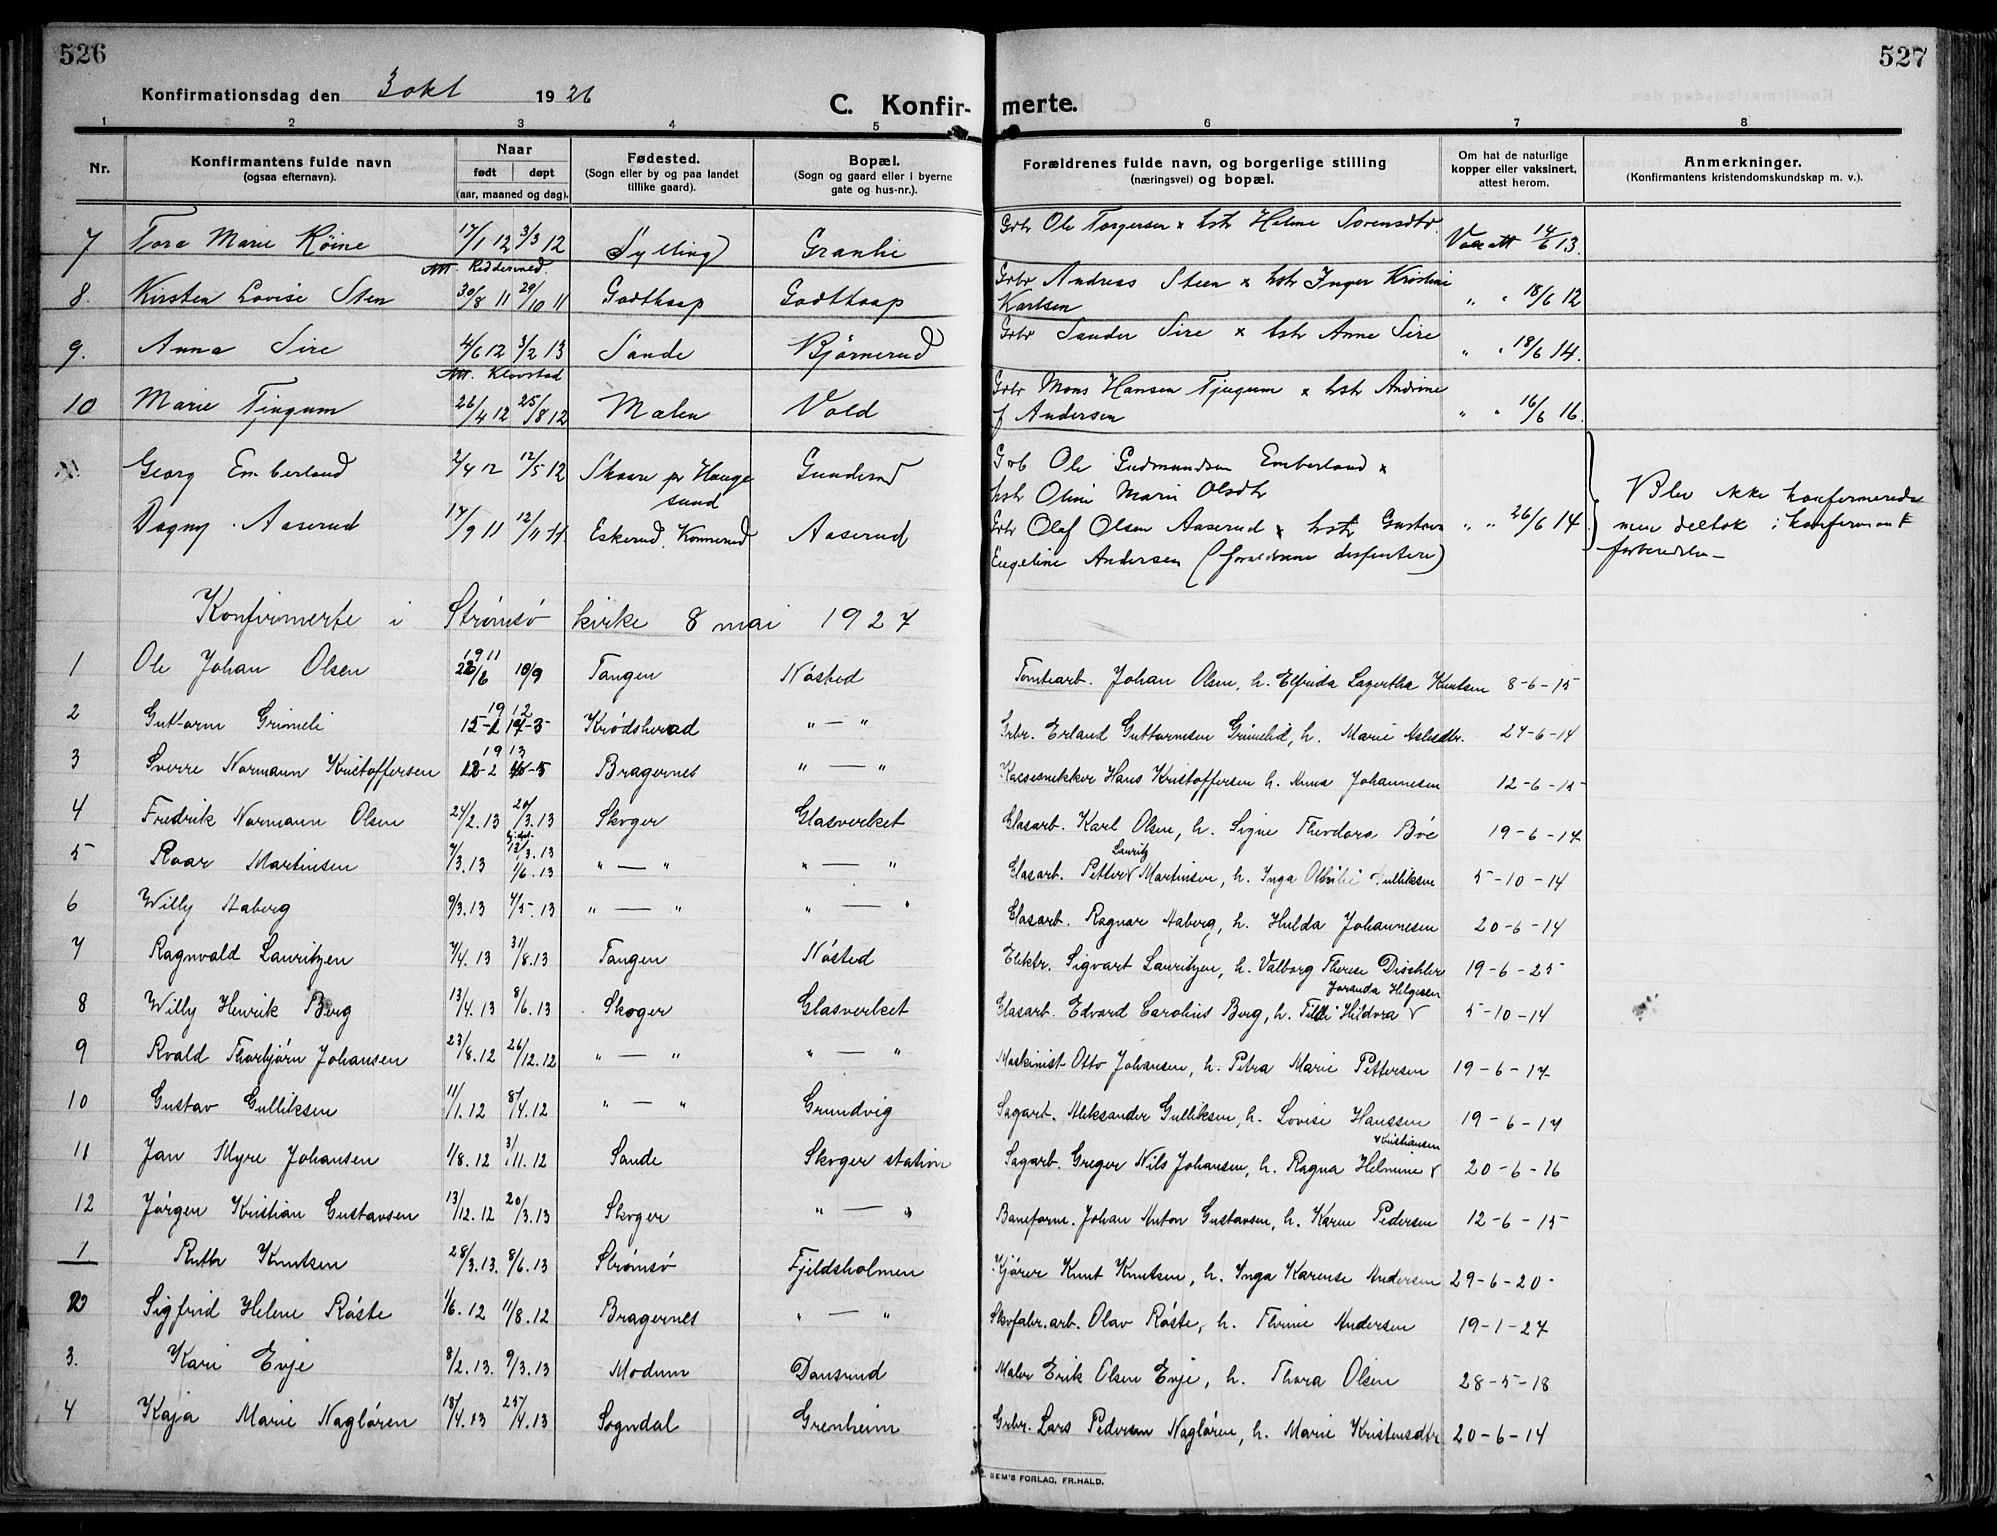 526
527
Konfirmationsdag den 3 okt 1926
C. Konfir- merte.
1 2 3 4 5 6 7 8
Nr. Konfirmantens fulde navn (ogsaa efternavn). Naar født døpt (aar, maaned og dag). Fødested. (Sogn eller by og paa landet tillike gaard). Bopæl. (Sogn og gaard eller i byerne gate og hus-nr.). Forældrenes fulde navn, og borgerlige stilling (næringsvei) og bopæl. Om hat de naturlige kopper eller vaksinert, attest herom. Anmerkninger. (Konfirmantens kristendomskundskap m. v.).
7 Tora Marie Röine 17/1 12 3/3 12 Sylling Granlie Grbr Ole Torgersen x hstr Helene Sorensdtr. Vacc att 14/6 13.
Att. Reddermed.
8. Kirsten Lovise Sten 30/8 11 29/10 11 Godthaap Godthaap Grbr Andreas Steen x hstr Inger Kristine Karlsen " " 18/6 12
9. Anna Sire 4/6 12 3/2 13 Sande Bjørnerud Grbr Sander Sire x hstr Anne Sire " " 18/6 14.
Att. Klovstad
10 Marie Tjugum 26/4 12 25/8 12 Mælen Vold Grbr Mons Hansen Tjugum x hstr Andrine f Andersen " " 16/6 16.
Georg Emberland 2/4 12 12/5 12 Skaare pr Haugesund Gunderud Grb Ole Gudmundsen Emberland x hstr Oline Marie Olsdtr
Dagny Aaserud 17/9 11 12/11 11. Eskerud, Konnerud Aaserud Grbr Olaf Olsen Aaserud x hstr Gustava Engeline Andersen (forældrene dissentere) " " 26/6 14
Blev ikke konfirmerede men deltok i konfirmant forberedelse
Konfirmerte i Strømsø kirke 8 mai 1927
1 Ole Johan Olsen 1911 22/6 10/9 Tangen Nøsted Tomtearb. Johan Olsen, h. Elfrida Lagertha Knutsen 8-6-15
2 Guttorm Grimeli 1912 15-1 17-3 Krødsherad " — " Grbr. Erland Guttormsen Grimelid, h. Marie Aslesdtr. 24-6-14
3 Sverre Normann Kristoffersen 1913 12-2 -5 Bragernes " — " Kassesnekker Hans Kristoffersen h. Anna Johannesen 12-6-15
4 Fredrik Normann Olsen 24/2. 13 20/3. 13 Skoger Glasverket Glasarb. Karl Olsen, h. Signe Theodora Bøe 19-6-14
5 Roar Martinsen 7/3. 13 13/3. 13 1/6. 13 " — " " — " Glasarb. Petter Lauritz Martinsen, h. Inga Othilie Gulliksen 5-10-14
6 Willy Aaberg 9/3. 13 4/5. 13 " — " " — " Glasarb. Ragnar Aaberg, h. Hulda Johannesen 20-6-14
7 Ragnvald Lauritzen 7/4. 13 31/8. 13 Tangen Nøsted Elektr. Sigvart Lauritzen, h. Valborg Therese Dischler 19-6-25
8 Willy Henrik Berg 13/4. 13 8/6. 13 Skoger Glasverket Glasarb. Edvard Carolius Berg, h. Tilli Hildora Joranda Helgesen 5-10-14
9 Roald Thorbjørn Johansen 23/8. 12 26/12. 12 " — " " — " Maskinist Otto Johansen, h. Petra Marie Pettersen 19-6-14
10 Gustav Gulliksen 11/1. 12 8/4. 12 " — " Grundvig Sagarb. Aleksander Gulliksen, h. Lovise Hanssen 19-6-14
11 Jan Myre Johansen 1/8. 12 3/11. 12 Sande Skoger station Sagarb. Greger Nils Johansen, h. Ragna Helmine Kristiansen 20-6-16
12 Jørgen Kristian Gustavsen 13/12. 12 20/3. 13 Skoger " — " Baneform. Johan Anton Gustavsen, h. Karen Pedersen 12-6-15
1 Ruth Knutsen 28/3. 13. 8/6. 13 Strømsø Fjeldsholmen Kjører Knut Knutsen, h. Inga Karense Andersen 29-6-20
2 Sigfrid Helene Røste 1/6. 12 11/8. 12 Bragernes " — " Skofabr.arb. Olav Røste, h. Thrine Andersen 19-1-27
3. Kari Evje 8/2. 13. 9/3. 13 Modum Dansrud Maler Erik Olsen Evje, h. Thora Olsen 28-5-18
4 Kaja Marie Nagløren 18/4. 13 25/4. 13 Sogndal Grenheim Grbr. Lars Pedersen Nagløren, h. Marie Kristensdtr. 20-6-14
SEM'S FORLAG, FR.HALD.